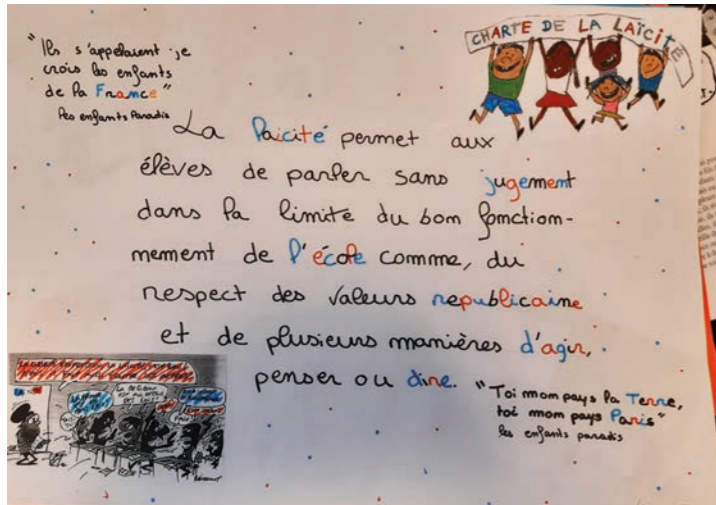 "Ils s'appelaient je
crois les enfants
de la France"
les enfants Paradis
CHARTE DE LA LAÏCITÉ
La laïcité permet aux
élèves de parler sans jugement
dans la limite du bon fonction-
nement de l'école comme, du
respect des valeurs republicaine
et de plusieurs manières d'agir,
penser ou dire.
"Toi mon pays la Terre,
toi mon pays Paris"
les enfants paradis